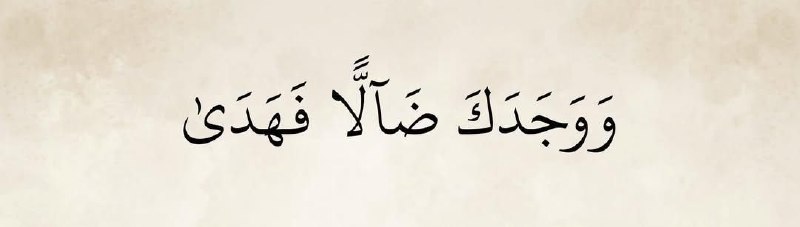 وَوَجَدَكَ ضَآلًّا فَهَدَىٰ